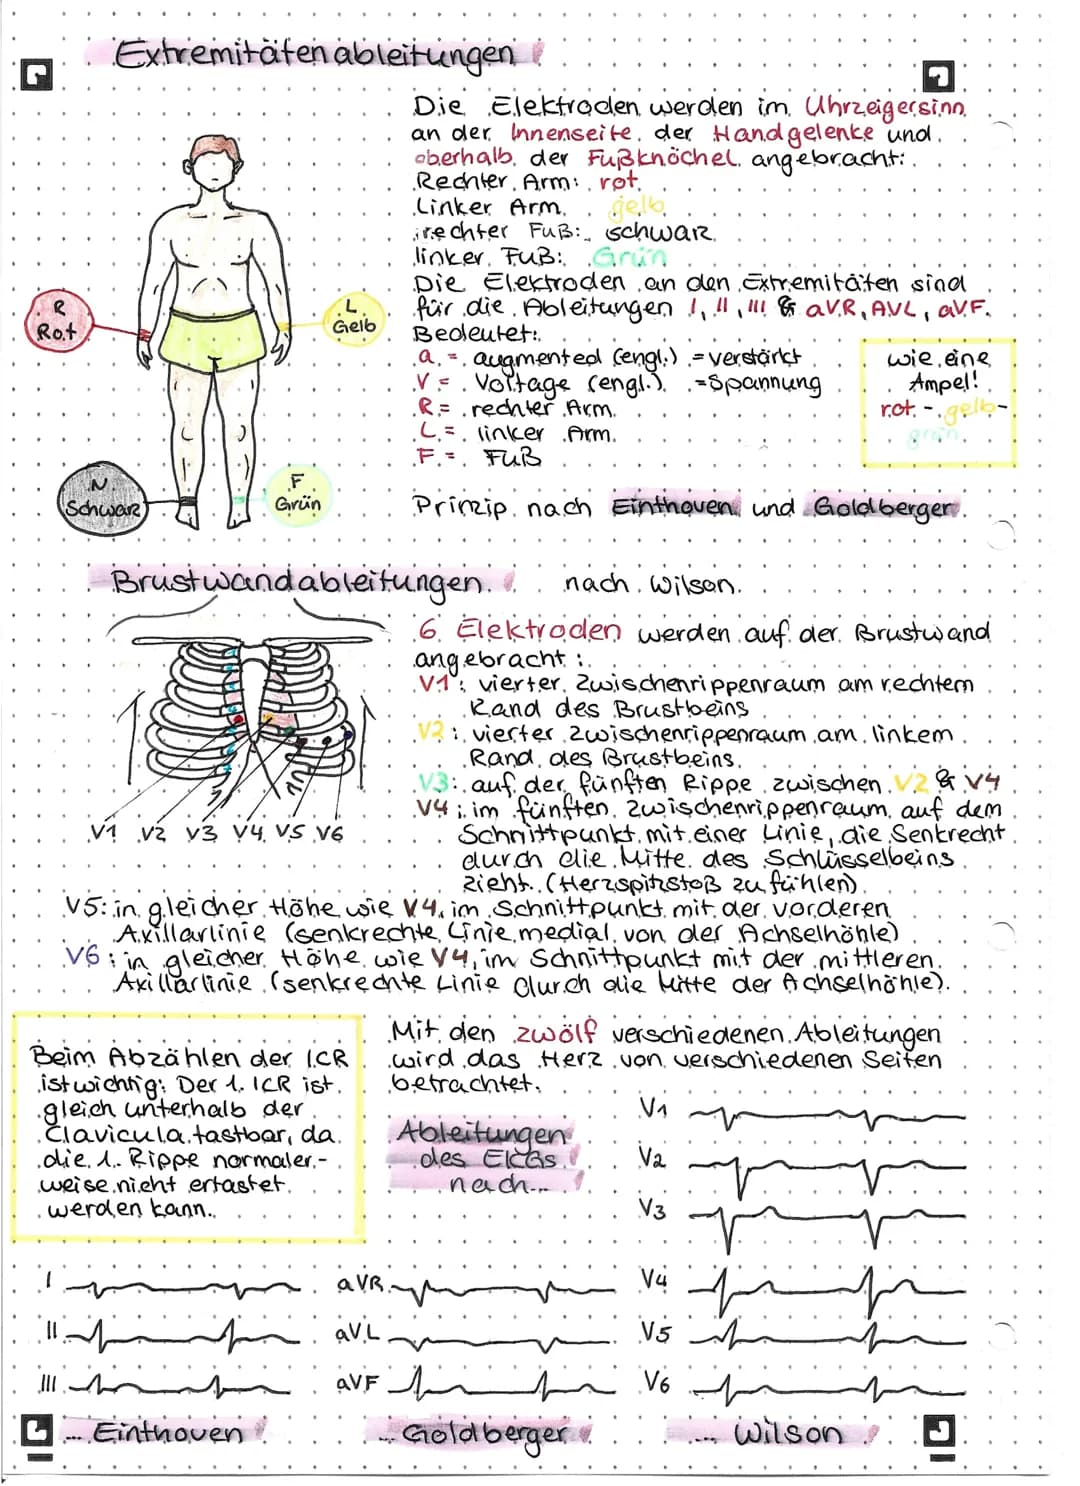 Extremitätenableitungen
Die Elektroden werden im Uhrzeigersinn
an der Innenseite der Handgelenke und
oberhalb der Fußknöchel angebracht:
Rechter Arm: rot
Linker Arm gelb
rechter Fuß: schwarz
linker Fuß: Grün
Die Elektroden an den Extremitäten sind
für die Ableitungen I, II, III & aVR, AVL, aVF.
Bedeutet:
a = augmented (engl.) = verstärkt
V = Voltage (engl.) = Spannung
R = rechter Arm
L = linker Arm
F = Fuß
wie eine
Ampel!
rot - gelb -
grün
R
Rot
L
Gelb
N
Schwarz
F
Grün
Prinzip nach Einthoven und Goldberger.
Brustwandableitungen nach Wilson.
6 Elektroden werden auf der Brustwand
angebracht:
V1: vierter Zwischenrippenraum am rechtem
Rand des Brustbeins
V2: vierter Zwischenrippenraum am linkem
Rand des Brustbeins
V3: auf der fünften Rippe zwischen V2 & V4
V4: im fünften Zwischenrippenraum auf dem
Schnittpunkt mit einer Linie, die Senkrecht
durch die Mitte des Schlüsselbeins
zieht (Herzspitzstoß zu fühlen)
V1 V2 V3 V4 V5 V6
V5: in gleicher Höhe wie V4, im Schnittpunkt mit der vorderen
Axillarlinie (senkrechte Linie medial von der Achselhöhle)
V6: in gleicher Höhe wie V4, im Schnittpunkt mit der mittleren
Axillarlinie (senkrechte Linie durch die Mitte der Achselhöhle).
Beim Abzählen der ICR
ist wichtig: Der 1. ICR ist
gleich unterhalb der
Clavicula tastbar, da
die 1. Rippe normaler-
weise nicht ertastet
werden kann.
Mit den zwölf verschiedenen Ableitungen
wird das Herz von verschiedenen Seiten
betrachtet.
Ableitungen
des EKGs
nach...
V1
V2
V3
I aVR V4
II aVL V5
III aVF V6
... Einthoven ... Goldberger ... Wilson